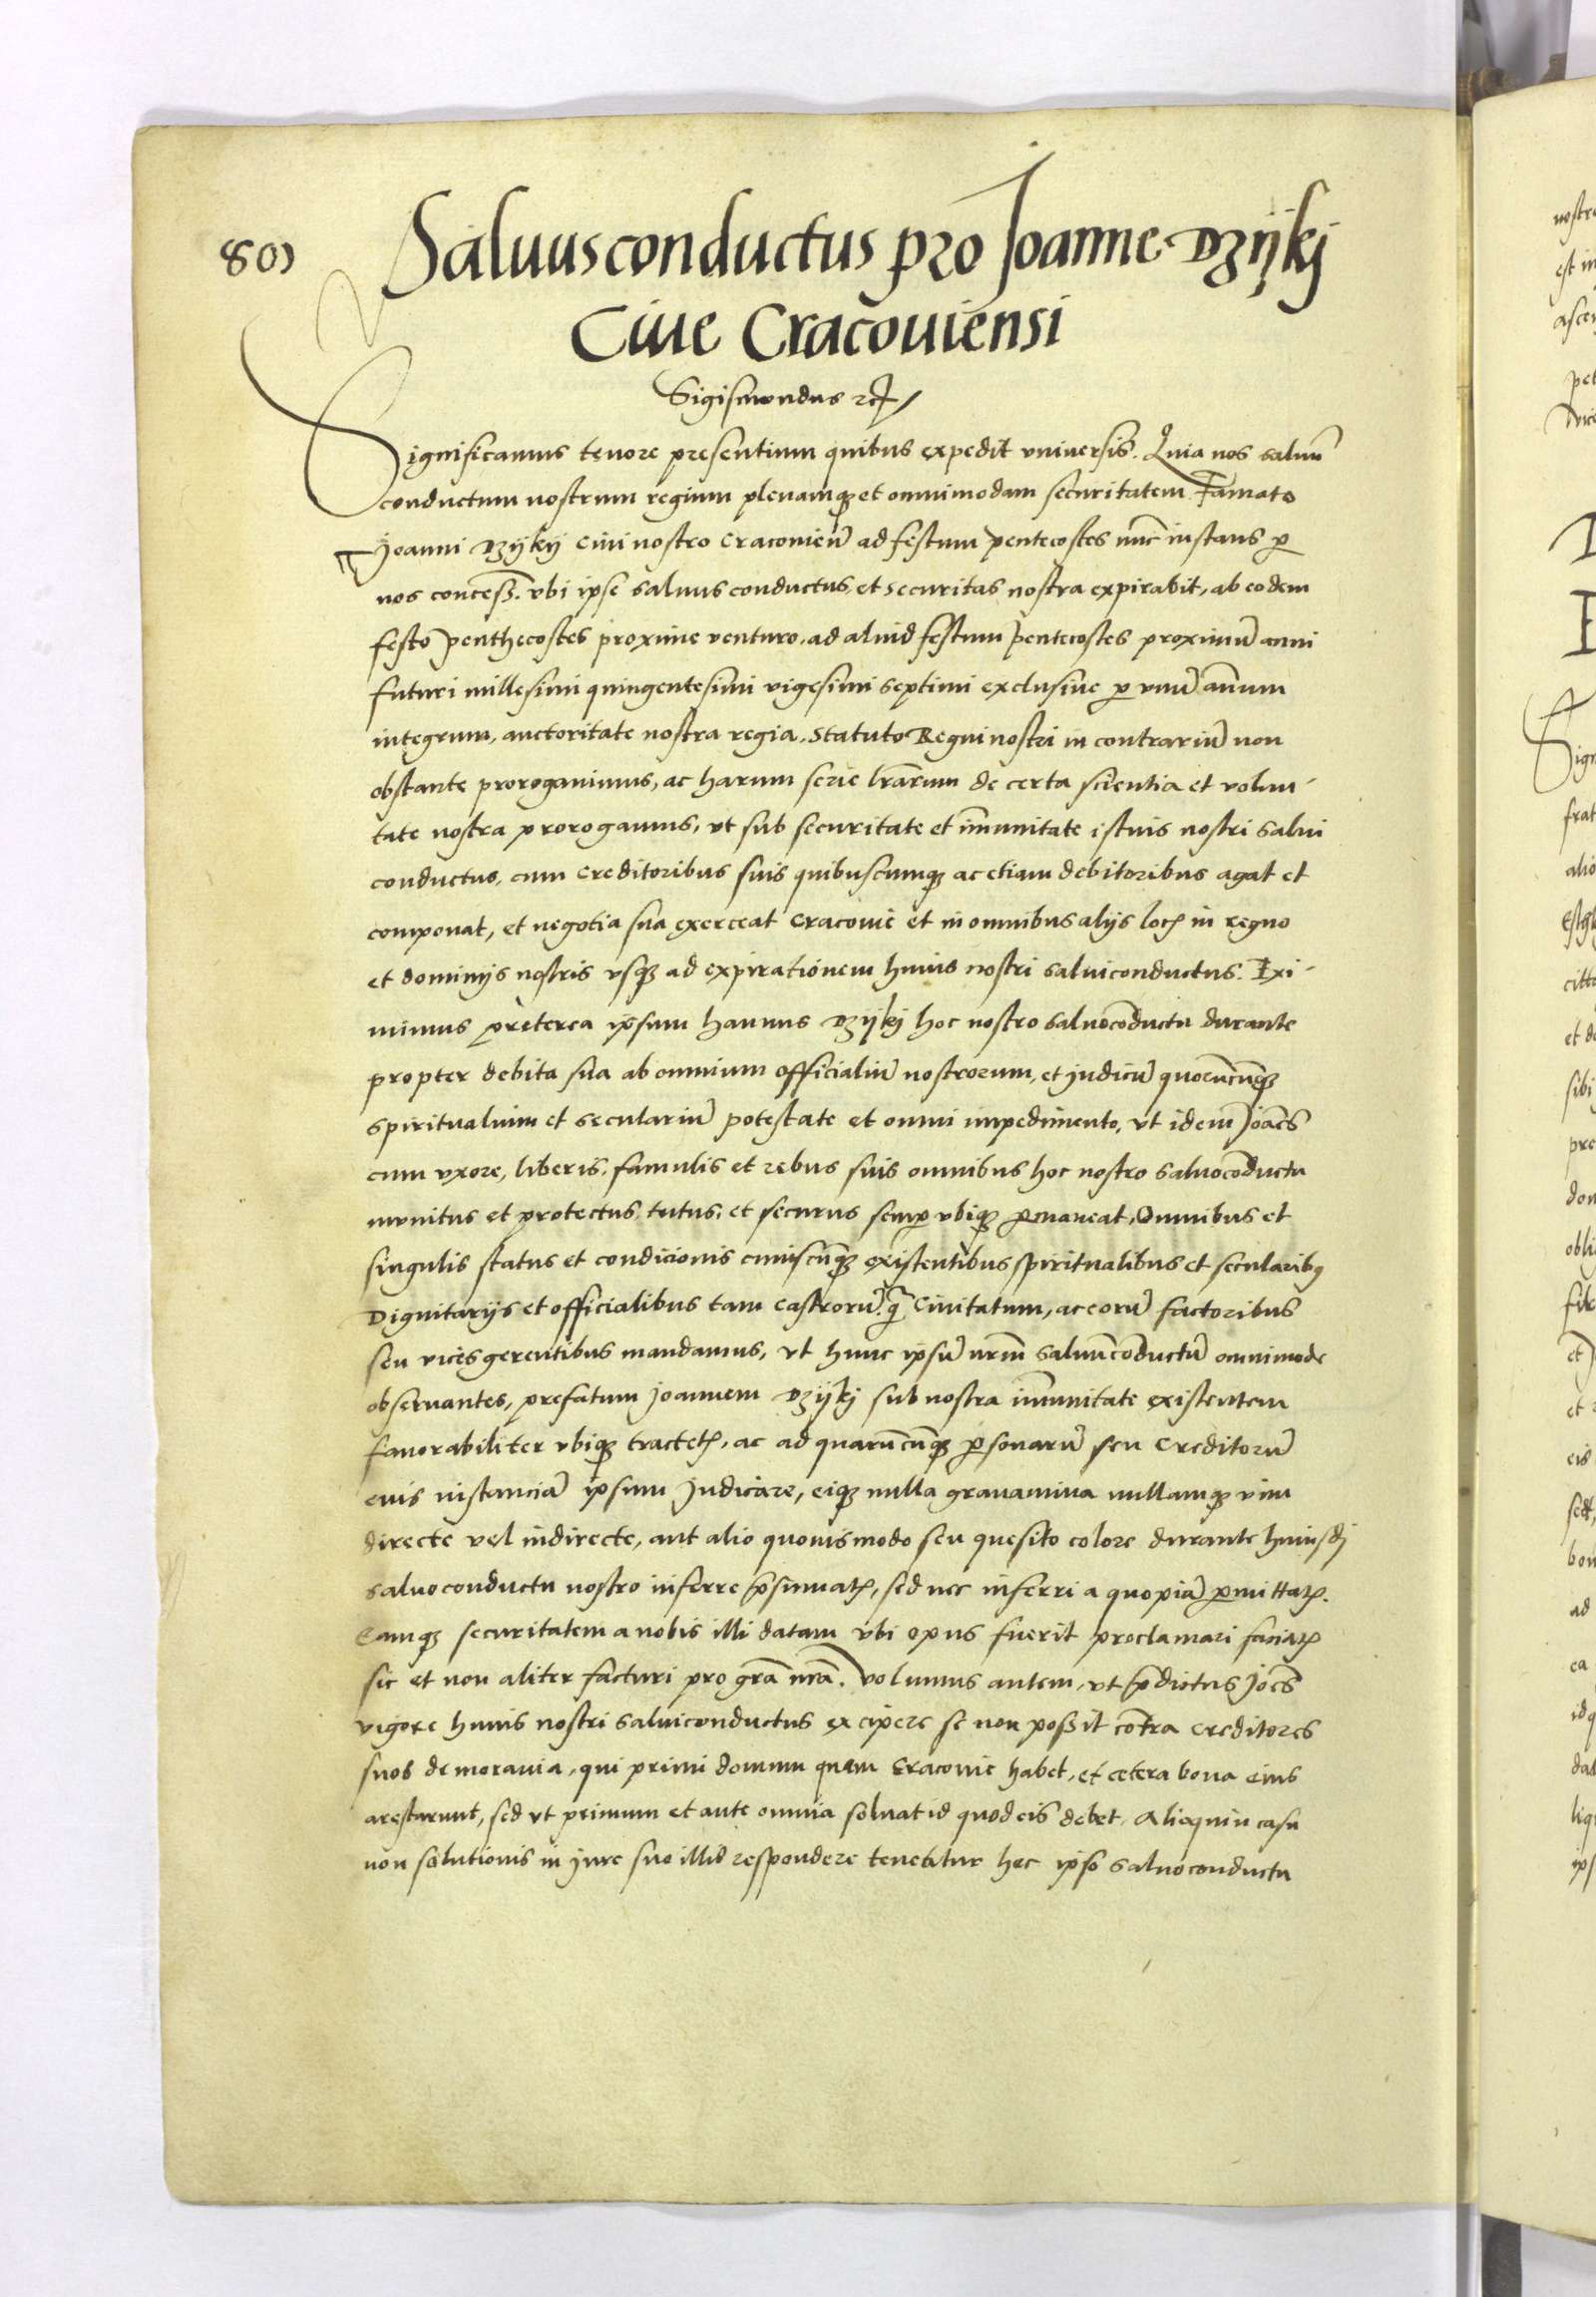 809
Saluusconductus pro Joanne Dzijkj
Ciue Cracouiensi
Sigismundus etc
Significamus tenore presentium quibus expedit vniuersis. Quia nos saluũ
conductum nostrum regium plenamq; et omnimodam securitatem Famato
Joanni Dzijkij ciui nostro Cracouieñ ad festum pentecostes nũc instans p
nos concess. vbi ipse saluus conductus, et securitas nostra expirabit, ab eodem
festo penthecostes proxime venturo, ad aliud festum pentecostes proximũ anni
futuri millesimi quingentesimi vigesimi septimi exclusiue p vnũ annum
integrum, auctoritate nostra regia, statuto Regni nostri in contrariũ non
obstante prorogauimus, ac harum serie lrãrum de certa scientia et volun-
tate nostra prorogamus, vt sub securitate et ĩmunitate istius nostri salui
conductus, cum creditoribus suis quibuscumq; ac etiam debitoribus agat et
componat, et negotia sua exerceat Cracouie et in omnibus alijs locis in regno
et dominijs nostris vsq; ad expirationem huius nostri saluiconductus. Exi-
mimus preterea ipsum hannus Dzijkj hoc nostro saluocõductu durante
propter debita sua ab omnium officialiũ nostrorum, et judicũ quorũcũq;
spiritualium et seculariũ potestate et omni impedimento, vt idem Joães
cum vxore, liberis, famulis et rebus suis omnibus hoc nostro saluocõductu
munitus et protectus, tutus, et securus semp vbiq; pmaneat, Omnibus et
singulis status et condicionis cuiuscũq; existentibus spiritualibus et secularibus
Dignitarijs et officialibus tam castrorũ q̃ Ciuitatum, ac eorũ factoribus
seu vices gerentibus mandamus, vt hunc ipsũ nrm̃ saluũcõductũ omnimode
obseruantes, prefatum Joannem Dzijkj sub nostra ĩmunitate existentem
fauorabiliter vbiq; tractetis, ac ad quarũcũq; psonarũ seu creditorũ
eius instanciã ipsum Judicare, eiq; nulla grauamina nullamq; vim
directe vel indirecte, aut alio quouismodo seu quesito colore durante huiusdj
saluoconductu nostro inferre p̃sumatis, sed nec inferri a quopiã pmittatis.
Eamq; securitatem a nobis illi datam vbi opus fuerit proclamari faciatis
sic et non aliter facturi pro grã nrã. volumus autem, vt p̃dictus Joẽs
vigore huius nostri saluiconductus excipere se non possit cõtra creditores
suos de morauia, qui primi domum quam Cracouie habet, et cetera bona eius
arestarunt, sed vt primum et ante omnia soluat id quod eis debet, Alioquin casu
non solutionis in jure suo illis respondere tenebitur hoc ipso saluoconductu